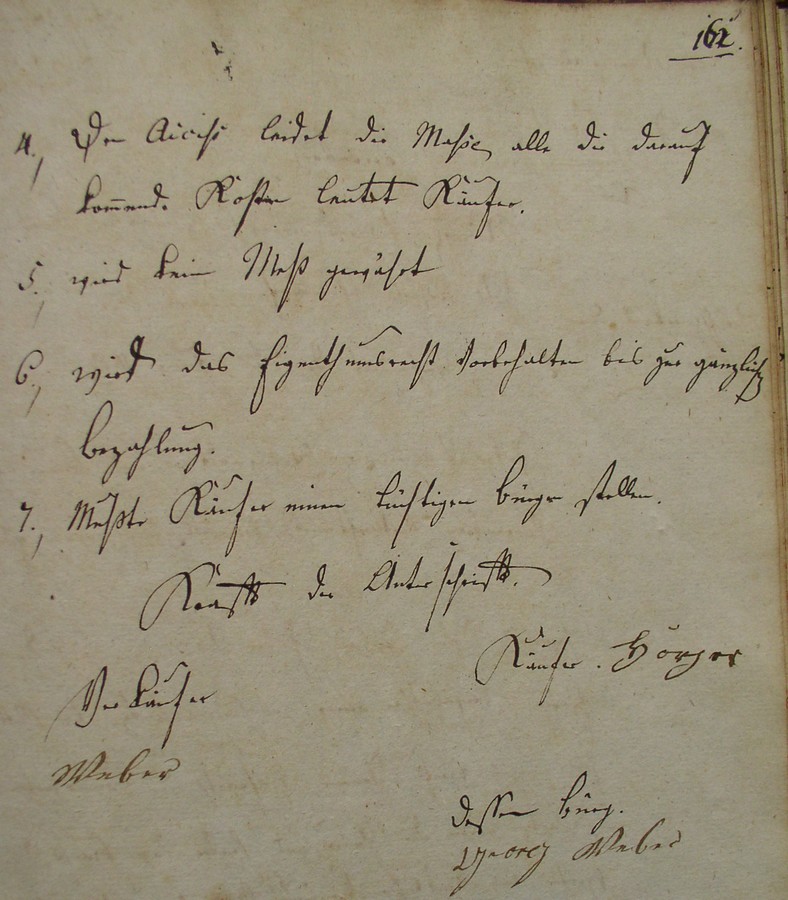 162.
4., Den Accis leidet die Masse, alle die darauf
kommend. Kosten leidet Käufer.
5., wird kein Meß gewährt
6., wird das Eigenthumsrecht vorbehalten bis zur gänzlich
bezahlung.
7., Mußte Käufer einen tüchtigen bürgen stellen.
Krafft der Unterschrifft.
Käufer. Hörger
Verkäufer
Weber
dessen bürg.
Georg Weber